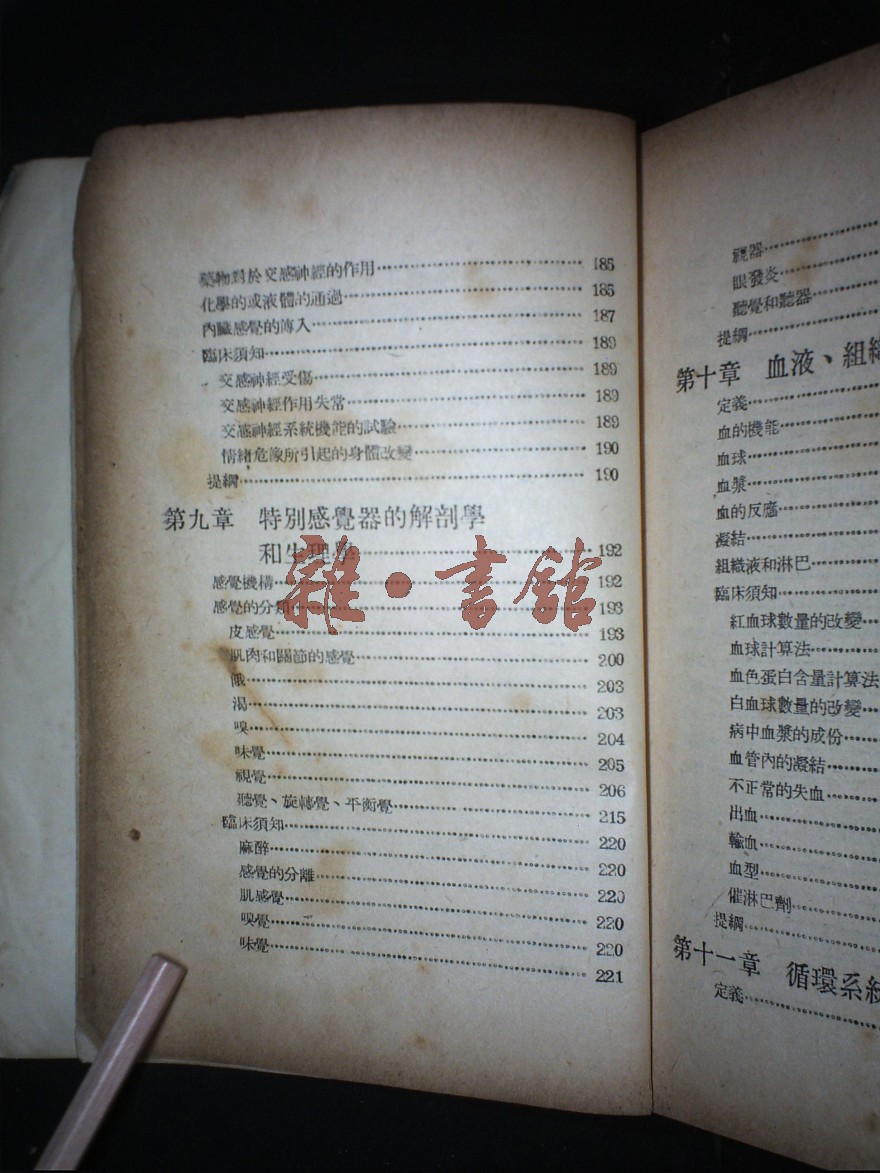 藥物對於交感神經的作用 185
化學的或液體的通過 185
內臟感覺的傳入 187
臨床須知 189
交感神經受傷 189
交感神經作用失常 189
交感神經系統機能的試驗 189
情緒危像所引起的身體改變 190
提綱 190
第九章 特別感覺器的解剖學
和生理學 192
感覺機構 192
感覺的分類 193
皮感覺 193
肌肉和關節的感覺 200
餓 203
渴 203
嗅 204
味覺 205
視覺 206
聽覺、旋轉覺、平衡覺 215
臨床須知 220
麻醉 220
感覺的分離 220
肌感覺 220
嗅覺 220
味覺 221
雜·書館
視器
眼發炎
聽覺和聽器
提綱
第十章 血液、組織
定義
血的機能
血球
血漿
血的反應
凝結
組織液和淋巴
臨床須知
紅血球數量的改變
血球計算法
血色蛋白含量計算法
白血球數量的改變
病中血漿的成份
血管內的凝結
不正常的失血
出血
輸血
血型
催淋巴劑
提綱
第十一章 循環系統
定義